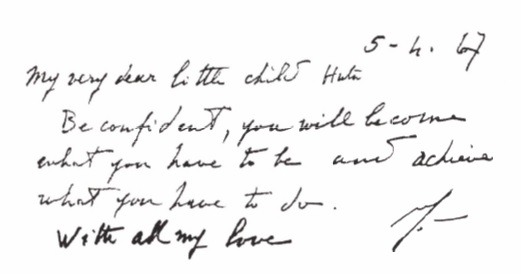 5-4.67
My very dear little child Huta
Be confident, you will become
what you have to be and achieve
what you have to do.
With all my love